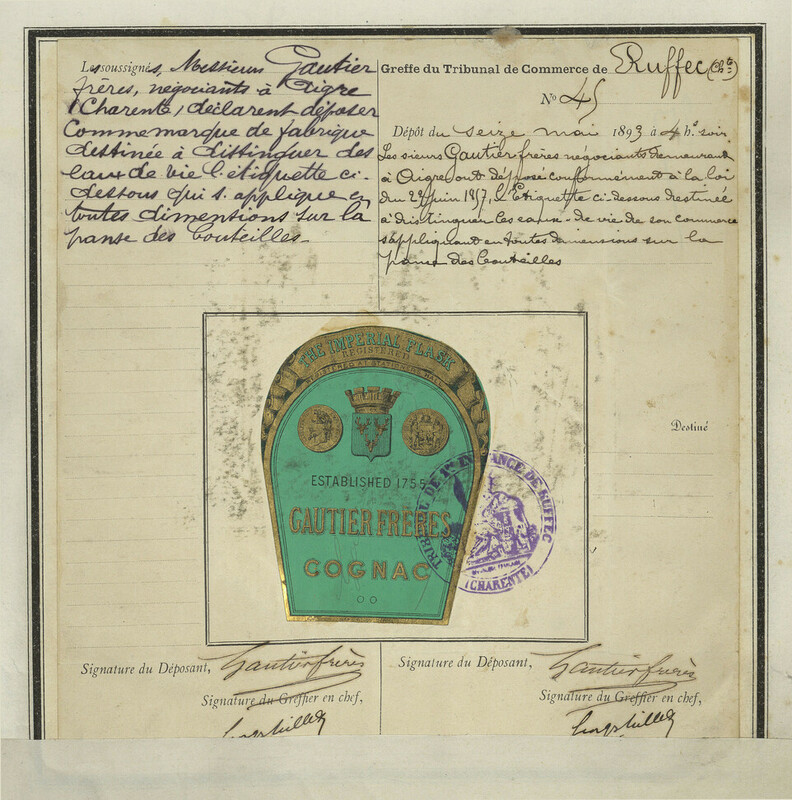 Les soussignés, Messieurs Gautier
frères, négociants à Aigre
(Charente) déclarent déposer
Comme marque de fabrique
destinée à distinguer des
eaux de vie l'étiquette ci-
dessous qui s'applique en
toutes dimentions sur la
panse des bouteilles.
Greffe du Tribunal de Commerce de Ruffec (Chte)
No 45
Dépôt du seize mai 1893 à 4 h. soir
Les sieurs Gautier frères négociants demeurant
à Aigre, ont déposé conformément à la loi
du 22 juin 1857, l'Etiquette ci-dessous destinée
à distinguer les eaux-de-vie de son commerce
s'appliquant en toutes dimensions sur la
panse des bouteilles
THE IMPERIAL FLASK
REGISTERED
REGISTERED AT STATIONERS HALL
ESTABLISHED 1755
GAUTIER FRÈRES
COGNAC
TRIBUNAL DE 1re INSTANCE DE RUFFEC
(CHARENTE)
Destiné
Signature du Déposant, Gautier frères
Signature du Greffier en chef,
Signature du Déposant, Gautier frères
Signature du Greffier en chef,